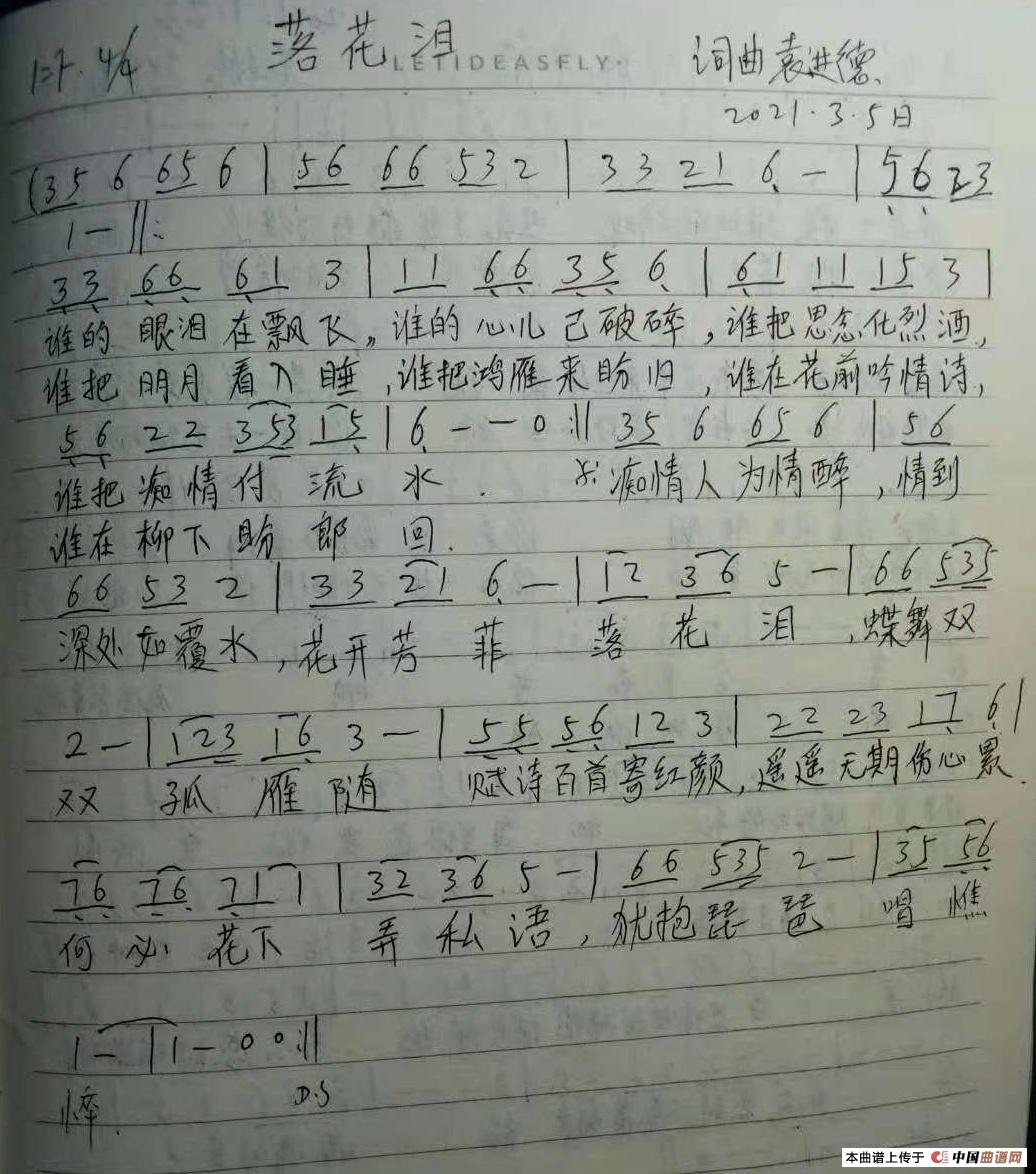 落花泪
LETIDEASFLY·
1=F. 4/4
词曲袁进德、
2021.3.5日
(35 6 65 6 | 56 66 53 2 | 33 21 6 - | 56 23
1 - ‖:
33 66 61 3 | 11 66 35 6 | 61 11 15 3 |
谁的 眼泪 在飘飞，谁的心儿已破碎，谁把思念化烈酒，
谁把 明月 看入睡，谁把鸿雁来盼归，谁在花前吟情诗，
56 22 353 15 | 6 - - 0 :‖ 35 6 65 6 | 56
谁把痴情付 流 水. 痴情人为情醉，情到
谁在柳下盼 郎 回.
66 53 2 | 33 21 6 - | 12 36 5 - | 66 535
深处如覆水，花开芳 菲 落 花 泪，蝶舞双
2 - | 123 16 3 - | 55 56 12 3 | 22 23 17 6 |
双 孤 雁 随 赋诗百首寄红颜，遥遥无期伤心累.
76 76 71 1 | 32 36 5 - | 66 535 2 - | 35 56
何必花下 弄 私 语，犹抱琵 琶 唱 憔
1 - | 1 - 0 0 :‖
悴. D.S
本曲谱上传于 中国曲谱网